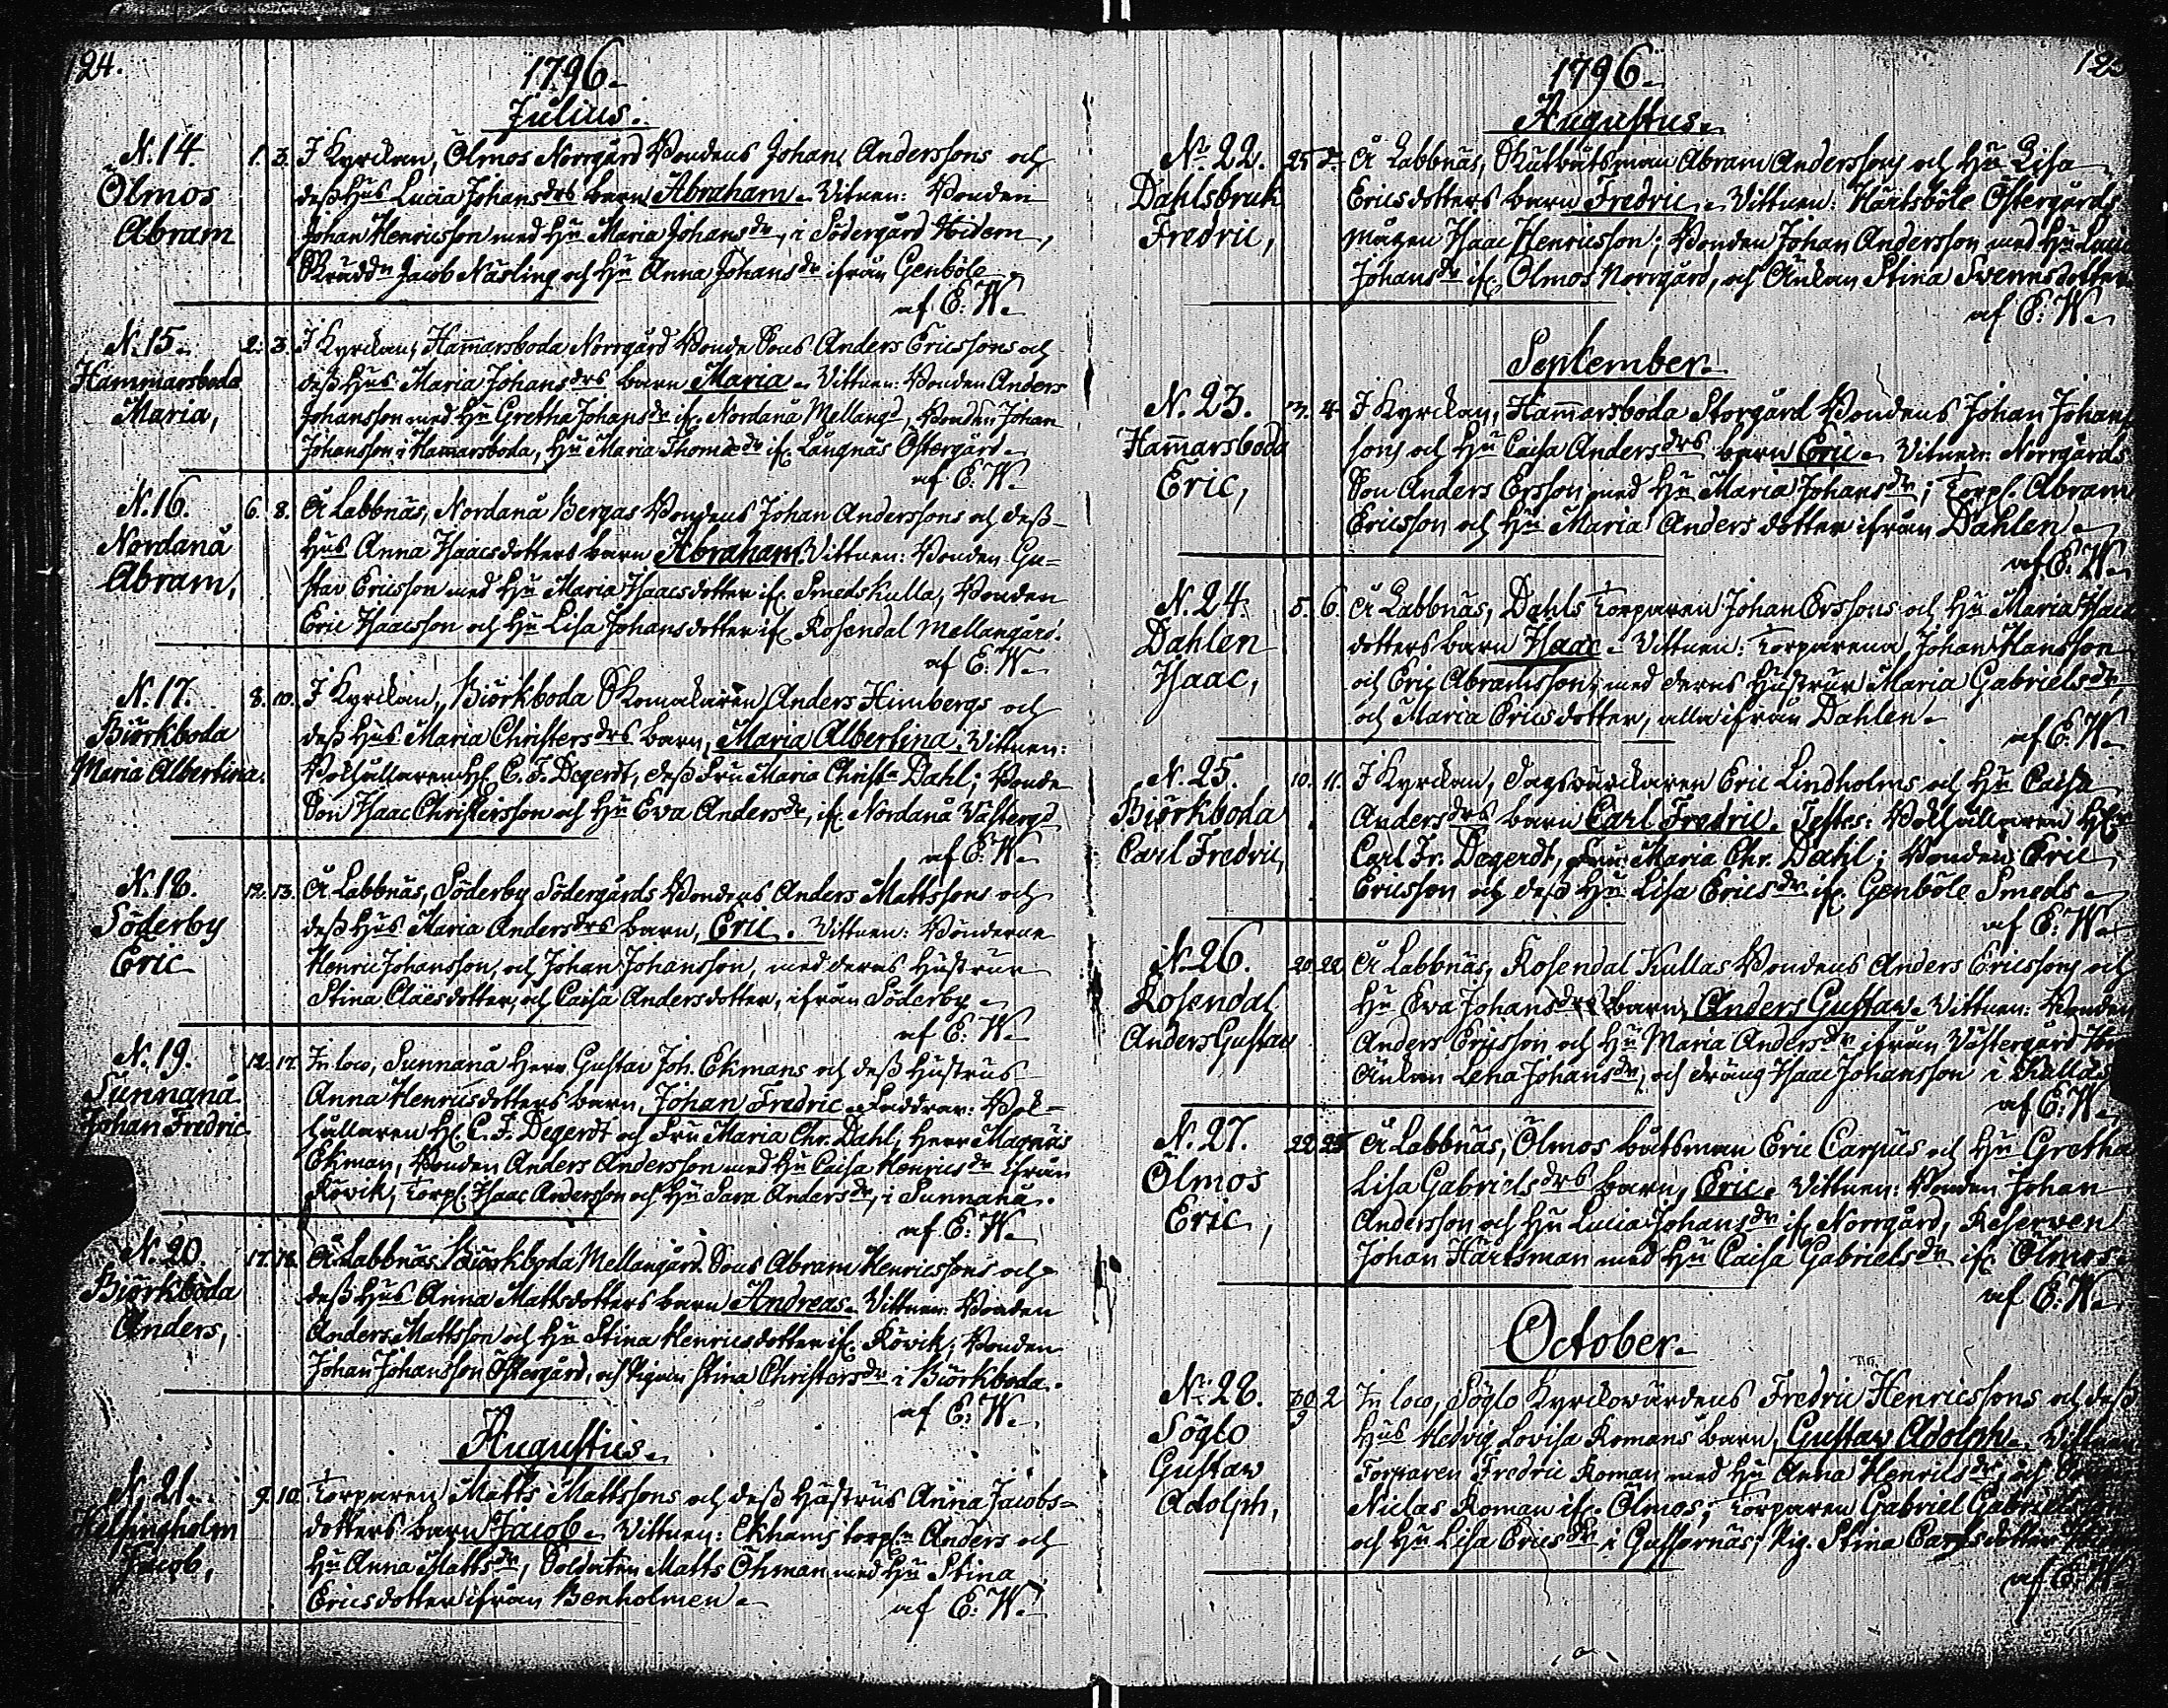 124.
1796.
Julius.
N. 14. 1. 3. I Kyrckan, Ölmos Norrgård Bondens Johan Anderssons och
Ölmos deß Hus Lucia Johansdrs barn Abraham. Vitnen: Bonden
Abram Johan Henricsson med Hu Maria Johansdr, i Södergård Widem,
Skrädd Jacob Näsling och Hu Anna Johansdr ifrån Genböle
af E. W.
N. 15. 2. 3. I Kyrckan, Hammarsboda Norrgård Bonde Sons Anders Ericssons och
Hammarsboda deß Hus Maria Johansdrs barn Maria. Vittnen: Bonden Anders
Maria, Johansson med Hu Gretha Johansdr if. Nordanå Mellangd, Bonden Johan
Johansson i Hammarsboda, Hu Maria Thomædr if. Långnäs Östergård.
af E. W.
N. 16. 6. 8. Å Labbnäs, Nordanå Bergas Bondens Johan Anderssons och deß
Nordanå Hus Anna Isaacsdotters barn Abraham. Vittnen: Bonden Gu=
Abram, stav Ericsson med Hu Maria Isaacsdotter if. Smedskulla, Bonden
Eric Isaacsson och Hu Lisa Johansdotter if. Rosendal Mellangård.
af E. W.
N. 17. 8. 10. I Kyrckan, Biörkboda Skomakaren Anders Himbergs och
Biörkboda deß Hus Maria Christersdrs barn, Maria Albertina. Vittnen:
Maria Albertina. Bokhållaren H. C. F. Degerdt, deß Fru Maria Christ. Dahl; Bonde
Son Isaac Christersson och Hu Eva Andersdr, if. Nordanå Västergd
af E. W.
N. 18. 12. 13. Å Labbnäs, Söderby Södergårds Bondens Anders Mattssons och
Söderby deß Hus Maria Andersdrs barn, Eric. Vittnen: Bönderne
Eric Henric Johansson, och Johan Johansson, med deras Hustrur
Stina Claësdotter, och Caisa Andersdotter, ifrån Söderby
af E. W.
N. 19. 12. 17. In loco, Sunnanå Herr Gustav Joh. Ekmans och deß Hustrus
Sunnanå Anna Henricsdotters barn, Johan Fredric. Faddrar: Bok=
Johan Fredric hållaren H. C. F. Degerdt och Fru Maria Chr. Dahl, Herr Magnus
Ekman, Bonden Anders Andersson med Hu Caisa Henricsdr ifrån
Kövik, Torp. Isaac Andersson och Hu Sara Andersdr, i Sunnanå.
af E. W.
N. 20. 17. 18. Å Labbnäs, Biörkboda Mellangård Sons Abram Henricssons och
Biörkboda deß Hus Anna Mattsdotters barn Andreas. Vittnen: Bonden
Anders, Anders Mattsson och Hu Stina Henricsdotter if. Kövik; Bonden
Johan Johansson Östergård, och Pigan Stina Christersdr i Biörkboda.
af E. W.
Augustus.
N. 21. 9. 10. Torparen Matts Mattssons och deß Hustrus Anna Jacobs=
Helsingholm dotters barn Jacob. Vittnen: Ekhams torp. Anders och
Jacob, Hu Anna Mattsdr, Soldaten Matts Öhman med Hu Stina
Ericsdotter ifrån Benholmen.
af E. W.
1796.
Augustus.
No. 22. 25. Å Labbnäs, Skutbåtsman Abram Anderssons och Hu Lisa
Dahlsbruk Ericsdotters barn Fredric. Vittnen: Hartsböle Östergårds
Fredric, Mågen Isaac Henricsson; Bonden Johan Andersson med Hu
Johansdr if. Ölmos Norrgård, och Änkan Stina Svensdotter
af E. W.
September.
N. 23. 3. 4. I Kyrckan, Hammarsboda Storgård Bondens Johan Johans
Hammarsboda sons och Hu Caisa Andersdrs barn Eric. Vitnen: Norrgårds
Eric, Son Anders Ersson med Hu Maria Johansdr; Torp. Abram
Ericsson och Hu Maria Andersdotter ifrån Dahlen
af E. W.
N. 24. 5. 6. Å Labbnäs, Dahls Torparen Johan Erssons och Hu Maria Isaacs
Dahlen dotters barn Isaac. Vittnen: Torparena, Johan Hansson
Isaac, och Eric Abramsson, med deras Hustrur Maria Gabrielsdr,
och Maria Ericsdotter, alla ifrån Dahlen.
af E. W.
N. 25. 10. 11. I Kyrckan, Dagsvärckaren Eric Lindholms och Hu Caisa
Biörkboda Andersdrs barn Carl Fredric. Testes: Bokhållaren H
Carl Fredric, Carl Fr. Degerdt, Fru Maria Chr. Dahl; Bonden Eric
Ericsson och deß Hu Lisa Ericsdr if. Genböle Smeds
af E. W.
N. 26. 20. 22. Å Labbnäs, Rosendal Kullas Bondens Anders Ericssons och
Rosendal Hu Eva Johansdrs barn, Anders Gustaw. Vittnen: Bonden
Anders Gustav Anders Ericsson och Hu Maria Andersdr ifrån Västergård
Änkan Lena Johansdr, och dräng Isaac Johansson i Kullas
af E. W.
N. 27. 22. 25. Å Labbnäs, Ölmos båtsman Eric Carpus och Hu Gretha
Ölmos Lisa Gabrielsdrs barn, Eric. Vittnen: Bonden Johan
Eric, Andersson och Hu Lucia Johansdr if. Norrgård, Reserven
Johan Hartsman med Hu Caisa Gabrielsdr if. Ölmos.
af E. W.
October.
N. 28. 30/9 2. In loco, Söglo Kyrckowärdens Fredric Henricssons och deß
Söglo Hus Hedvig Lovisa Romans barn, Gustaw Adolph. Vittnen
Gustaw Torparen Fredric Roman med Hu Anna Henricsdr, och
Adolph, Niclas Roman if. Ölmos; Torparen Gabriel Gabrielsson
och Hu Lisa Ericsdr i Gussornäs; Pig. Stina Carlsdotter
af E. W.